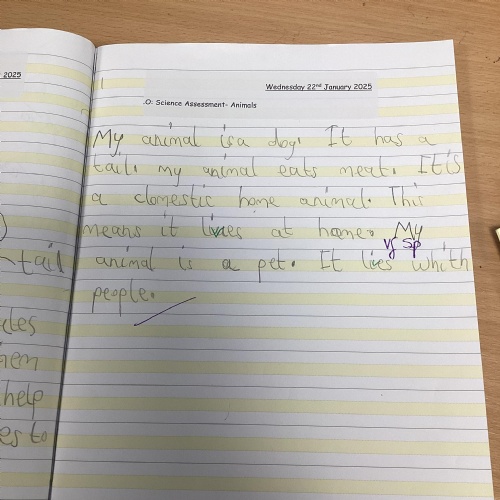 2025
Wednesday 22nd January 2025
.O: Science Assessment- Animals
My animal is a dog. It has a
tail. my animal eats meat. It is
a domestic home animal. This
means it lives at home. My
vs sp
animal is a pet. It lies whith
people.
tail
hem
help
es to